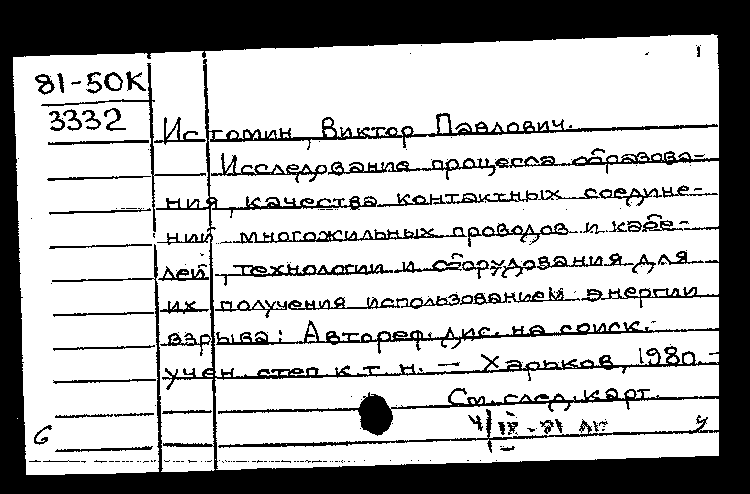 1
81-50К
3332
Истомин, Виктор Павлович.
Исследование процесса образова-
ния, качества контактных соедине-
ний многожильных проводов и кабе-
лей, технологии и оборудования для
их получения использованием энергии
взрыва: Автореф. дис. на соиск.
учен. степ к.т.н. — Харьков, 1980. -
См. след. карт.
6